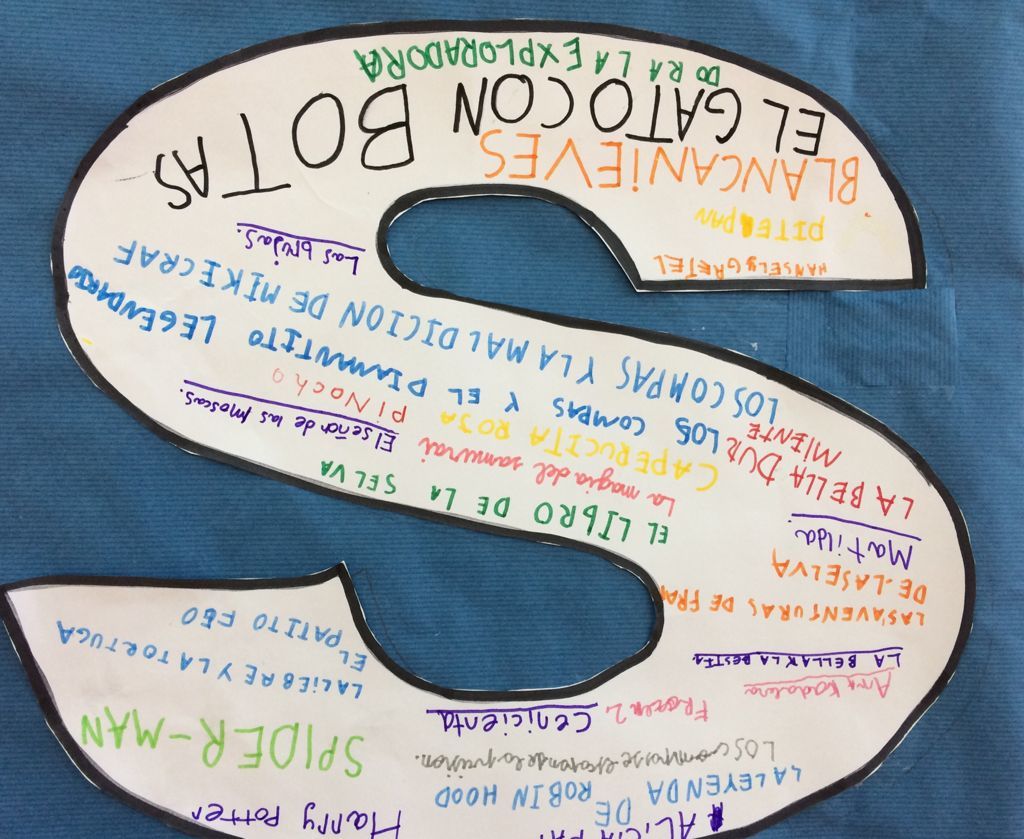 ALICIA
Harry Potter
LA LEYENDA DE ROBIN HOOD
SPIDER-MAN
Cenicienta
Frozen 2
LA LIEBRE Y LA TORTUGA
EL PATITO FEO
LA BELLA Y LA BESTIA
LAS AVENTURAS DE FRAN
DE LA SELVA
Matilda
EL LIBRO DE LA SELVA
LA BELLA DUR
MIENTE
La magia del samurai
CAPERUCITA ROJA
El señor de las moscas.
PiNocho
LOS COMPAS Y EL DIAMNTITO LEGENDARIO
LOS COMPAS Y LA MALDICION DE MIKECRAF
Las brujas.
HANSEL y GRETEL
PITER PAN
BLANCANiEVES
EL GATO CON BOTAS
DORA LA EXPLORADORA